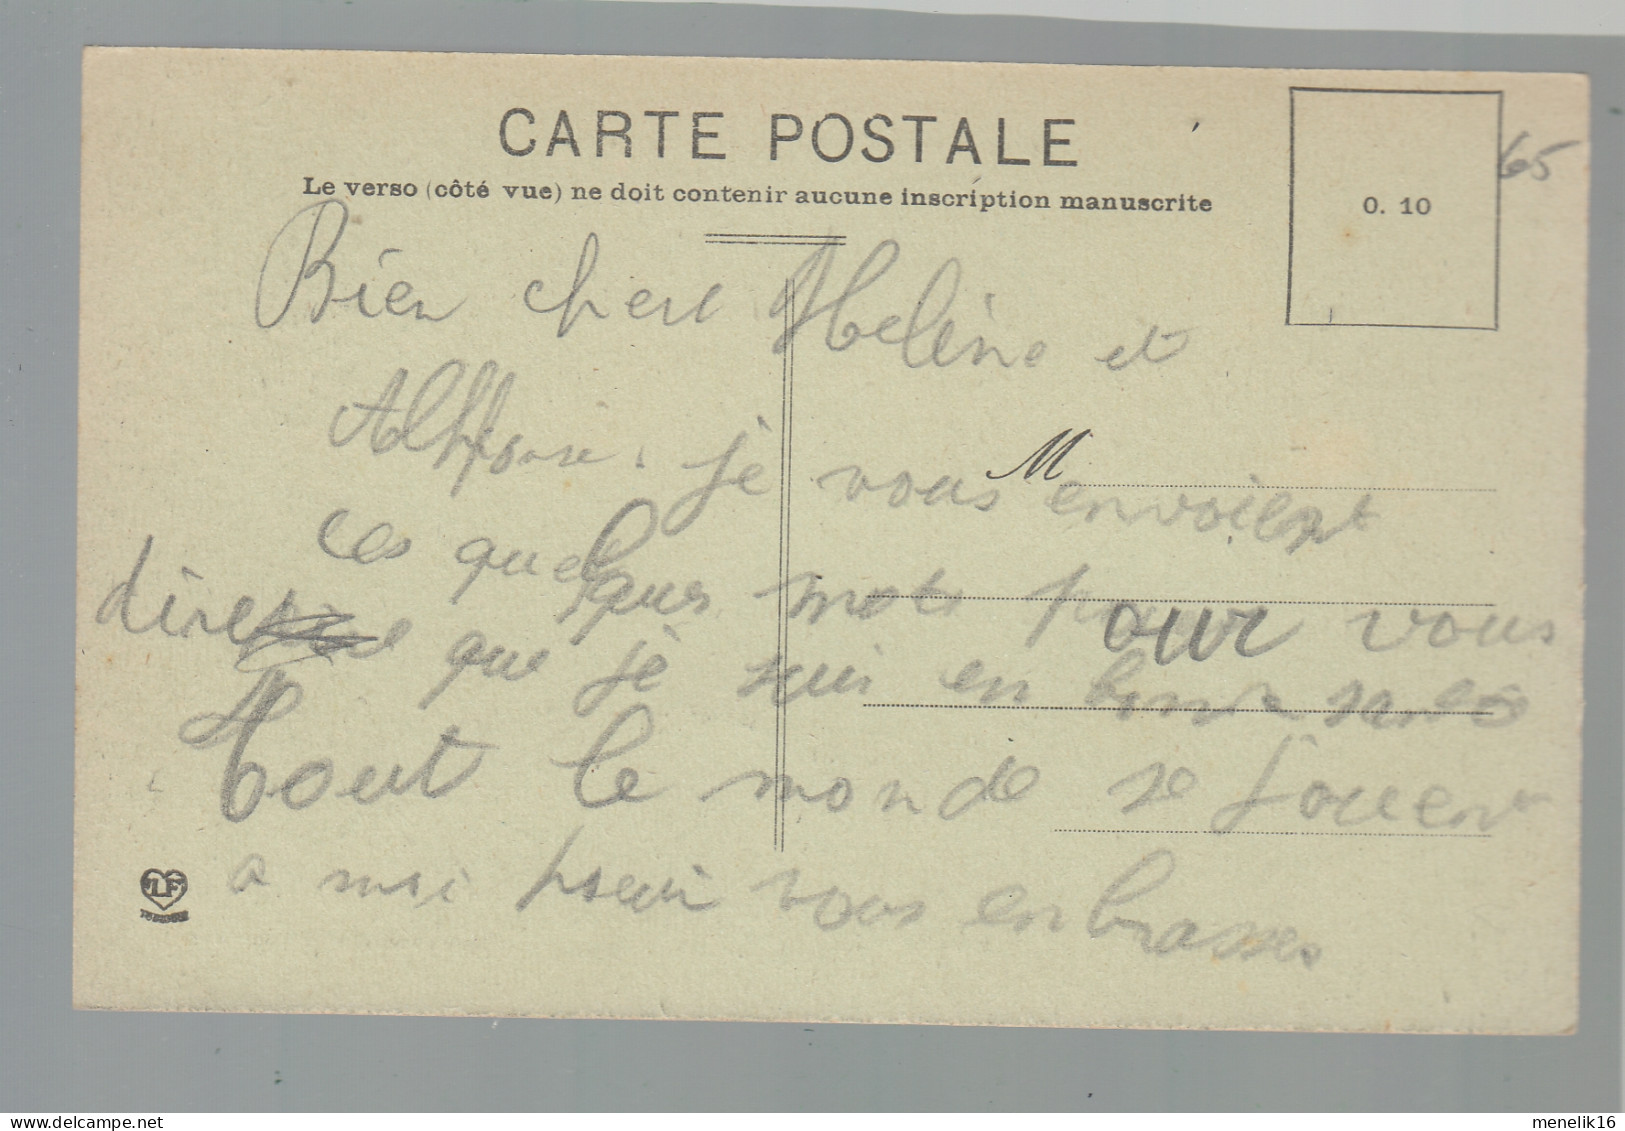 CARTE POSTALE
Le verso (côté vue) ne doit contenir aucune inscription manuscrite
0. 10
65
Bien chere Helène et
Alffonse. je vous envoient
M
ces quelques mots pour vous
dire que je suis en bonne
Tout le monde se jouent
a moi pour vous enbrasses
LF
menelik16